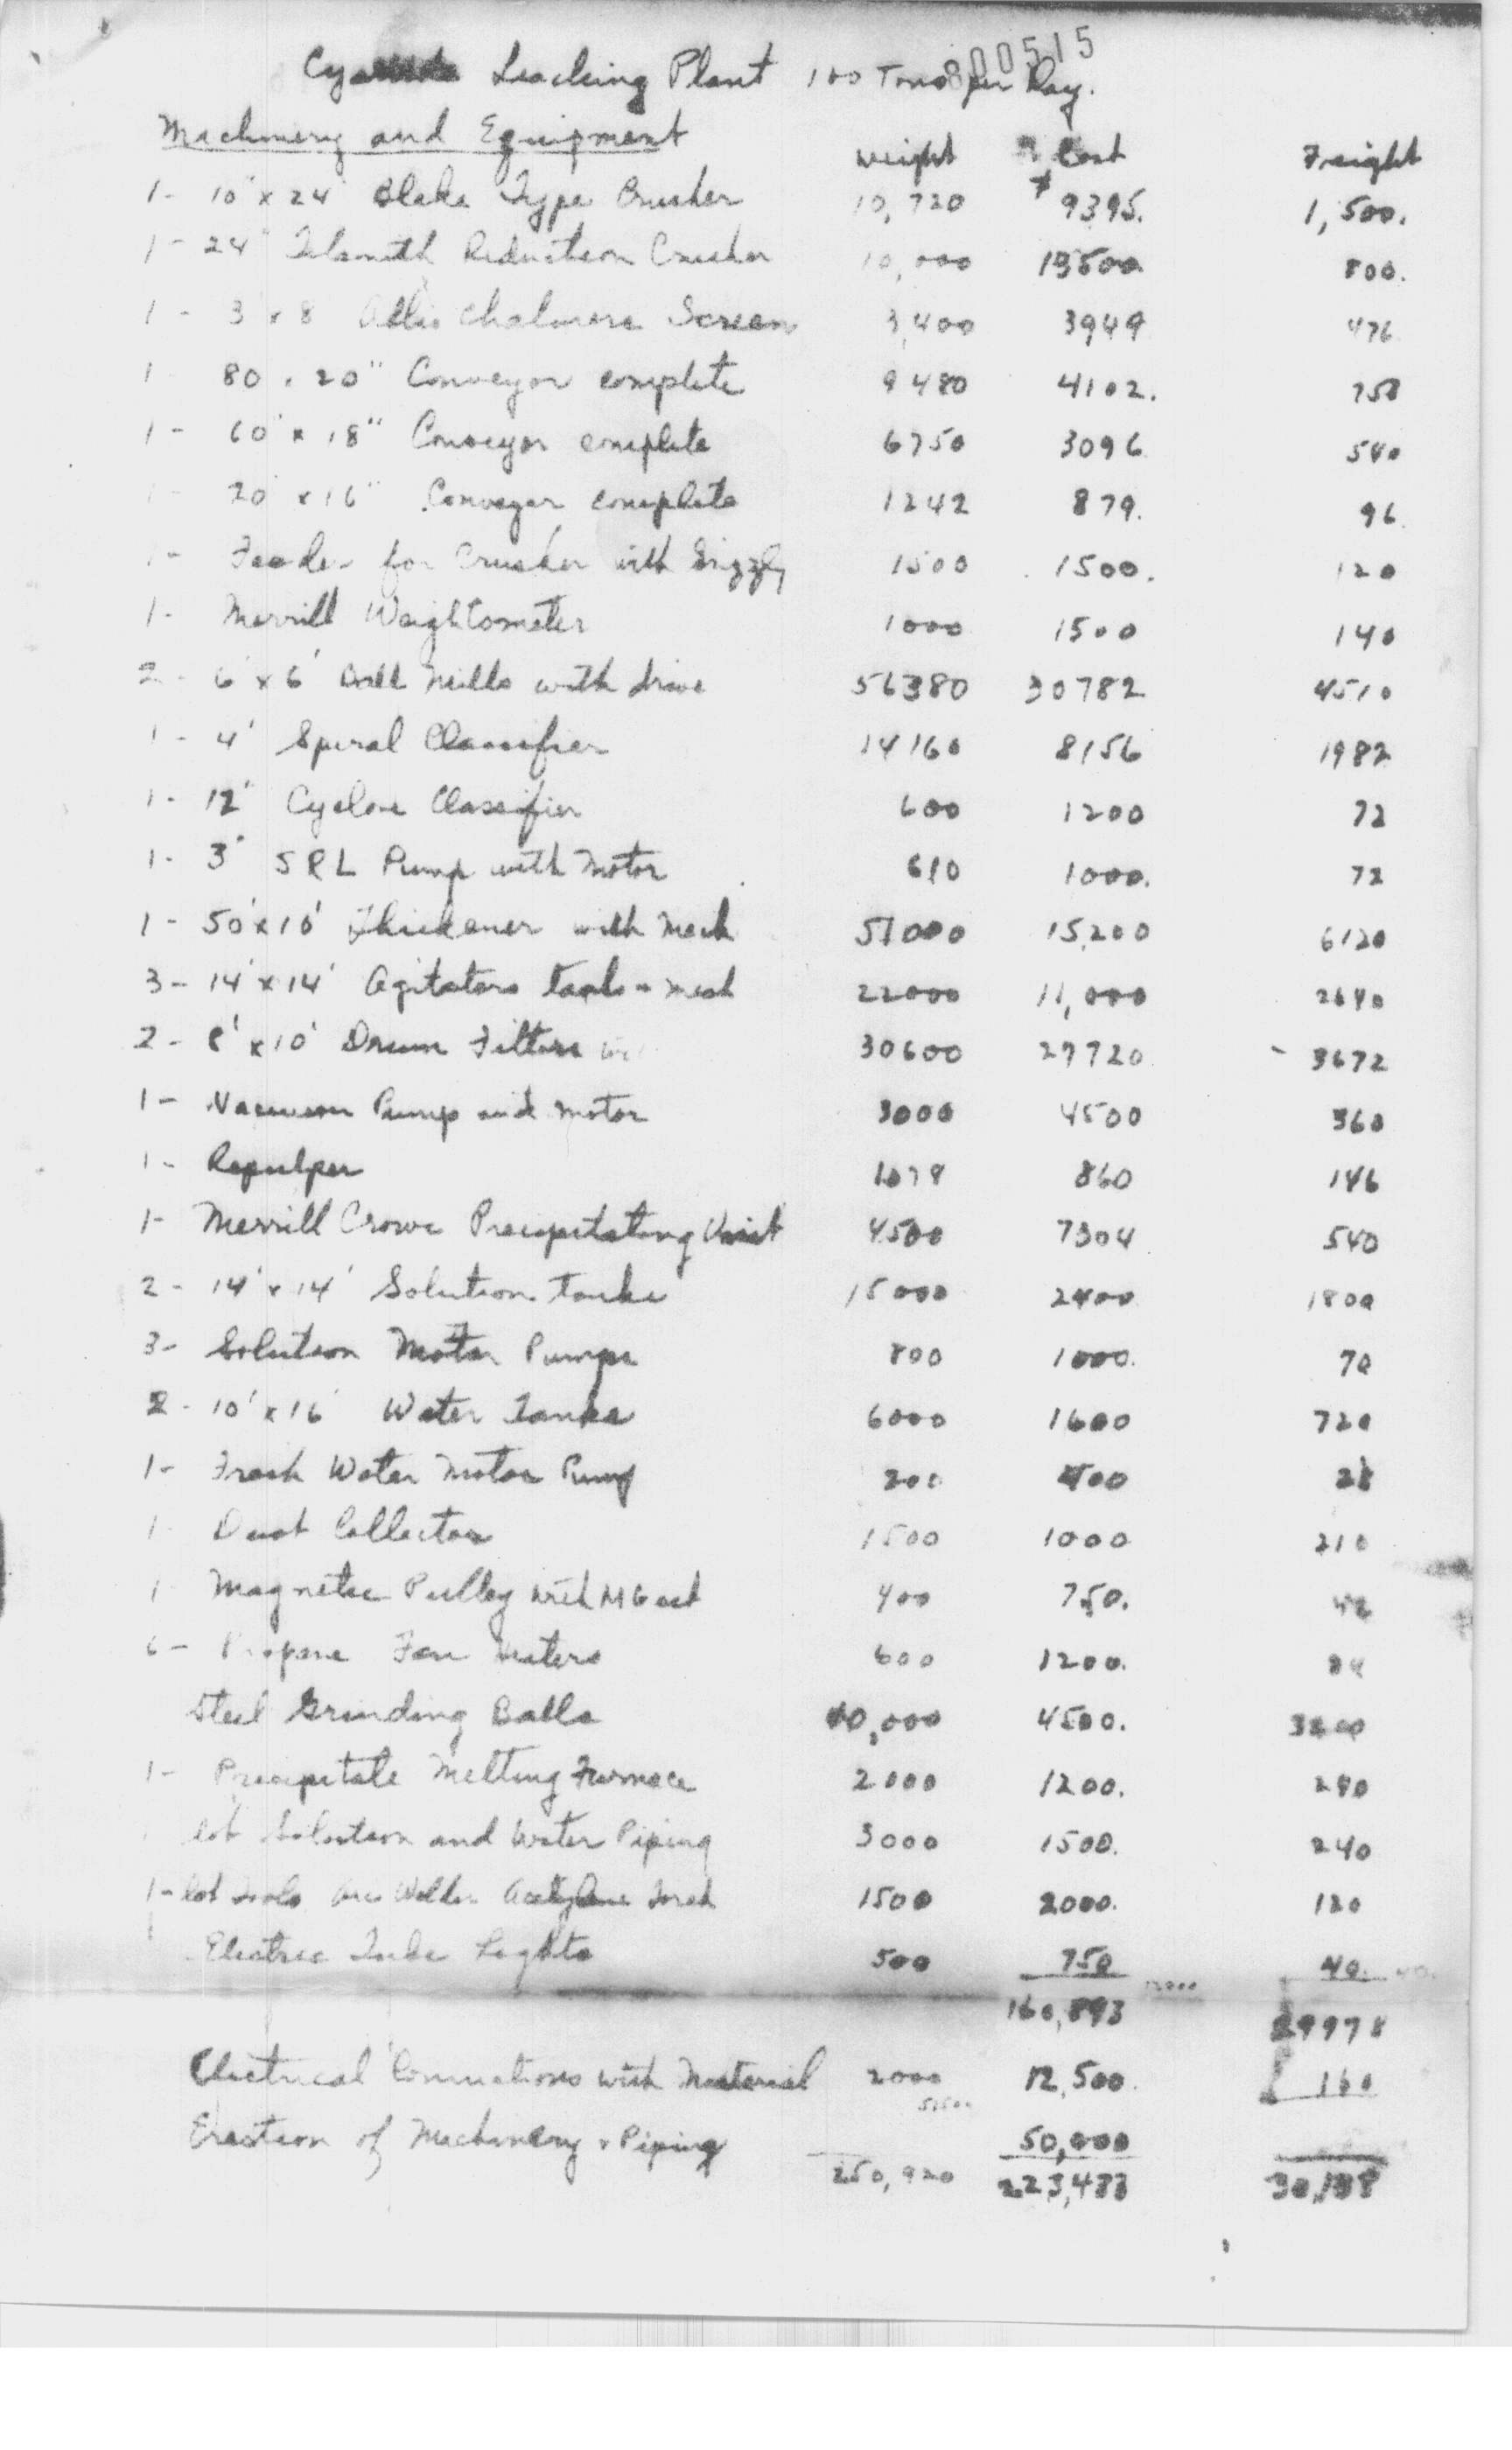 800515
Cyanide Leaching Plant 100 Tons per Day.
Machinery and Equipment Weight Cost Freight
1- 10" x 24" Blake Type Crusher 10,720 $9395. 1,500.
1- 24" Telsmith Reduction Crusher 10,000 13500 800.
1 - 3 x 8 Allis Chalmers Screen 3,400 3949 476
1 80 x 20" Conveyor complete 9480 4102. 758
1- 60' x 18" Conveyor complete 6750 3096 540
1- 20 x 16" Conveyor complete 1242 879. 96
1- Feeder for Crusher with Grizzly 1500 1500. 120
1- Merrill Weightometer 1000 1500 140
2- 6' x 6' Ball Mills with drive 56380 30782 4510
1- 4' Spiral Classifier 14160 8156 1982
1- 12" Cyclone Classifier 600 1200 72
1- 3" SRL Pump with Motor 610 1000. 72
1- 50' x 10' Thickener with Mech 51000 15,200 6120
3- 14' x 14' Agitators tanks - mech 22000 11,000 2640
2- 8' x 10' Drum Filters 30600 27720 3672
1- Vacuum Pump and Motor 3000 4500 360
1- Repulper 860 146
1- Merrill Crowe Precipitating Unit 4500 7304 540
2- 14' x 14' Solution tanks 15000 2400 1800
3- Solution Motor Pumps 800 1000. 70
2- 10' x 16' Water Tanks 6000 1600 720
1- Fresh Water Motor Pump 200 400 28
1- Dust Collector 1500 1000 210
1 Magnetic Pulley with MG set 400 750.
6- Propane Fan Heaters 600 1200. 84
Steel Grinding Balls 40,000 4500. 3200
1- Precipitate Melting Furnace 2000 1200. 240
lot Solution and Water Piping 3000 1500. 240
1- lot Tools Arc Welder Acetylene Torch 1500 2000. 120
Electric Tube Lights 500 750 40.
160,893 29978
Electrical Connections with Material 2000 12,500. 160
Erection of Machinery & Piping 50,000
250,920 223,483 30,138